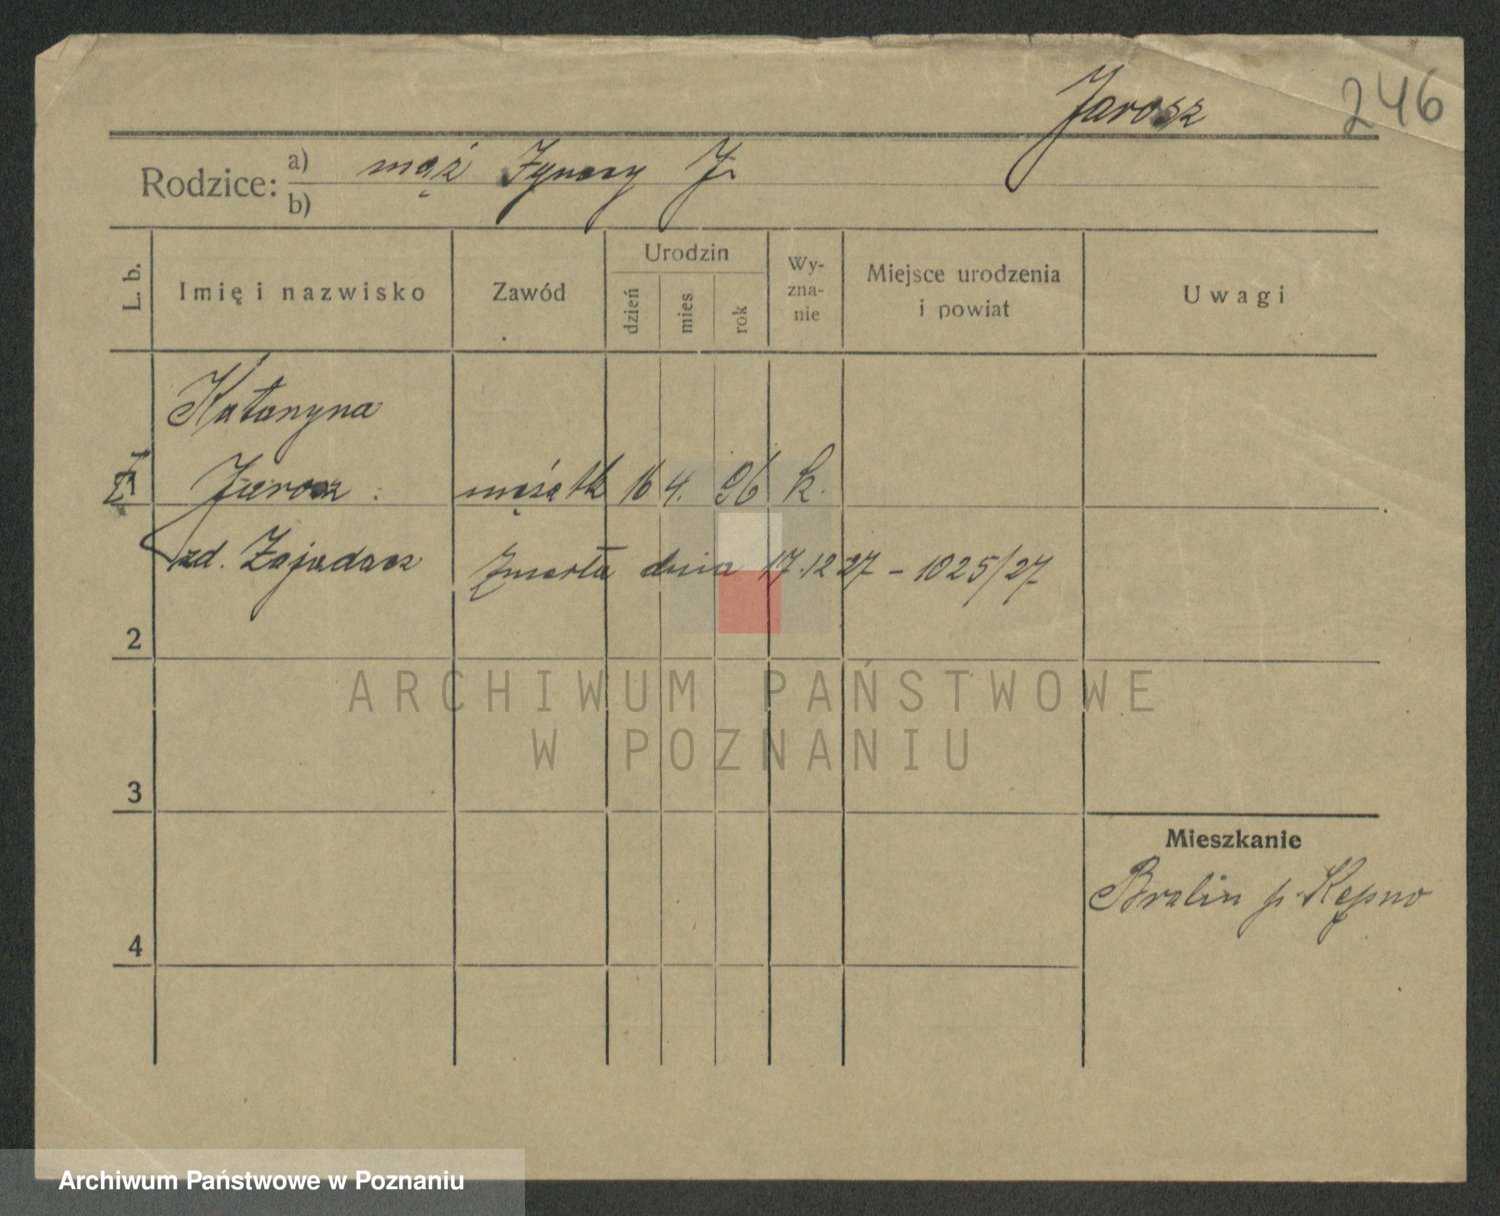 Jarosz
246
Rodzice: a) mąż Ignacy J.
b)
L. b.
Imię i nazwisko
Zawód
Urodzin
dzień
mies
rok
Wy-
zna-
nie
Miejsce urodzenia
i powiat
Uwagi
Katarzyna
Jarosz mężatk 16 4. 96 k.
zd. Zajadacz Zmarła dnia 17.12 27 - 1025/27
2
ARCHIWUM PAŃSTWOWE
W POZNANIU
3
Mieszkanie
Bralin p. Kępno
4
Archiwum Państwowe w Poznaniu